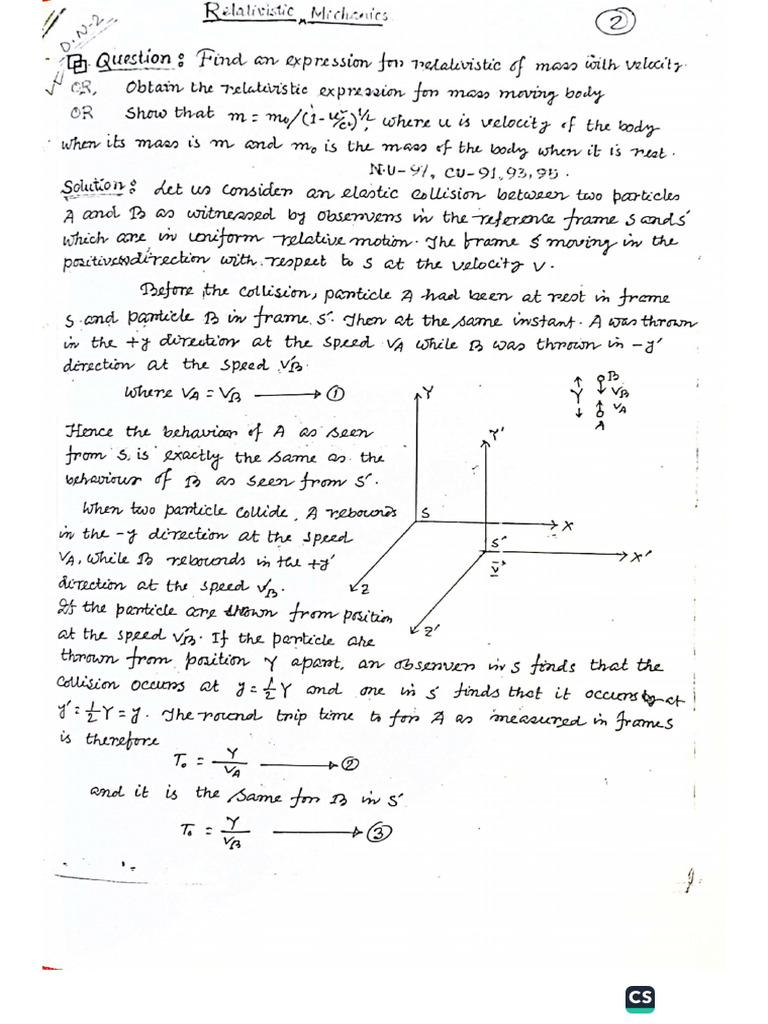 Relativistic Mechanics
2
D.N-2
Question: Find an expression for relativistic of mass with velocity.
OR, Obtain the relativistic expression for mass moving body
OR Show that m = m₀/(1-u²/c²)^1/2, where u is velocity of the body
when its mass is m and m₀ is the mass of the body when it is rest.
N.U-97, CU-91,93,95.
Solution: Let us consider an elastic collision between two particles
A and B as witnessed by observers in the reference frame S and S'
which are in uniform relative motion. The frame S' moving in the
positive direction with respect to S at the velocity v.
Before the collision, particle A had been at rest in frame
S and particle B in frame S'. Then at the same instant. A was thrown
in the +y direction at the speed VA while B was thrown in -y'
direction at the speed V'B.
where VA = V'B ⟶ ①
Hence the behavior of A as seen
from S, is exactly the same as the
behaviour of B as seen from S'.
When two particle collide, A rebounds
in the -y direction at the speed
VA, while B rebounds in the +y'
direction at the speed V'B.
If the particle are thrown from position
at the speed V'B. If the particle are
thrown from position Y apart, an observer in S finds that the
collision occurs at y = ½Y and one in S' finds that it occurs at
y' = ½Y = y. The round trip time to for A as measured in frame S
is therefore
T₀ = Y/VA ⟶ ②
and it is the same for B in S'
T₀ = Y/V'B ⟶ ③
Y
Y'
S
X
S'
X'
v
Z
Z'
B
Y
VB
VA
A
CS